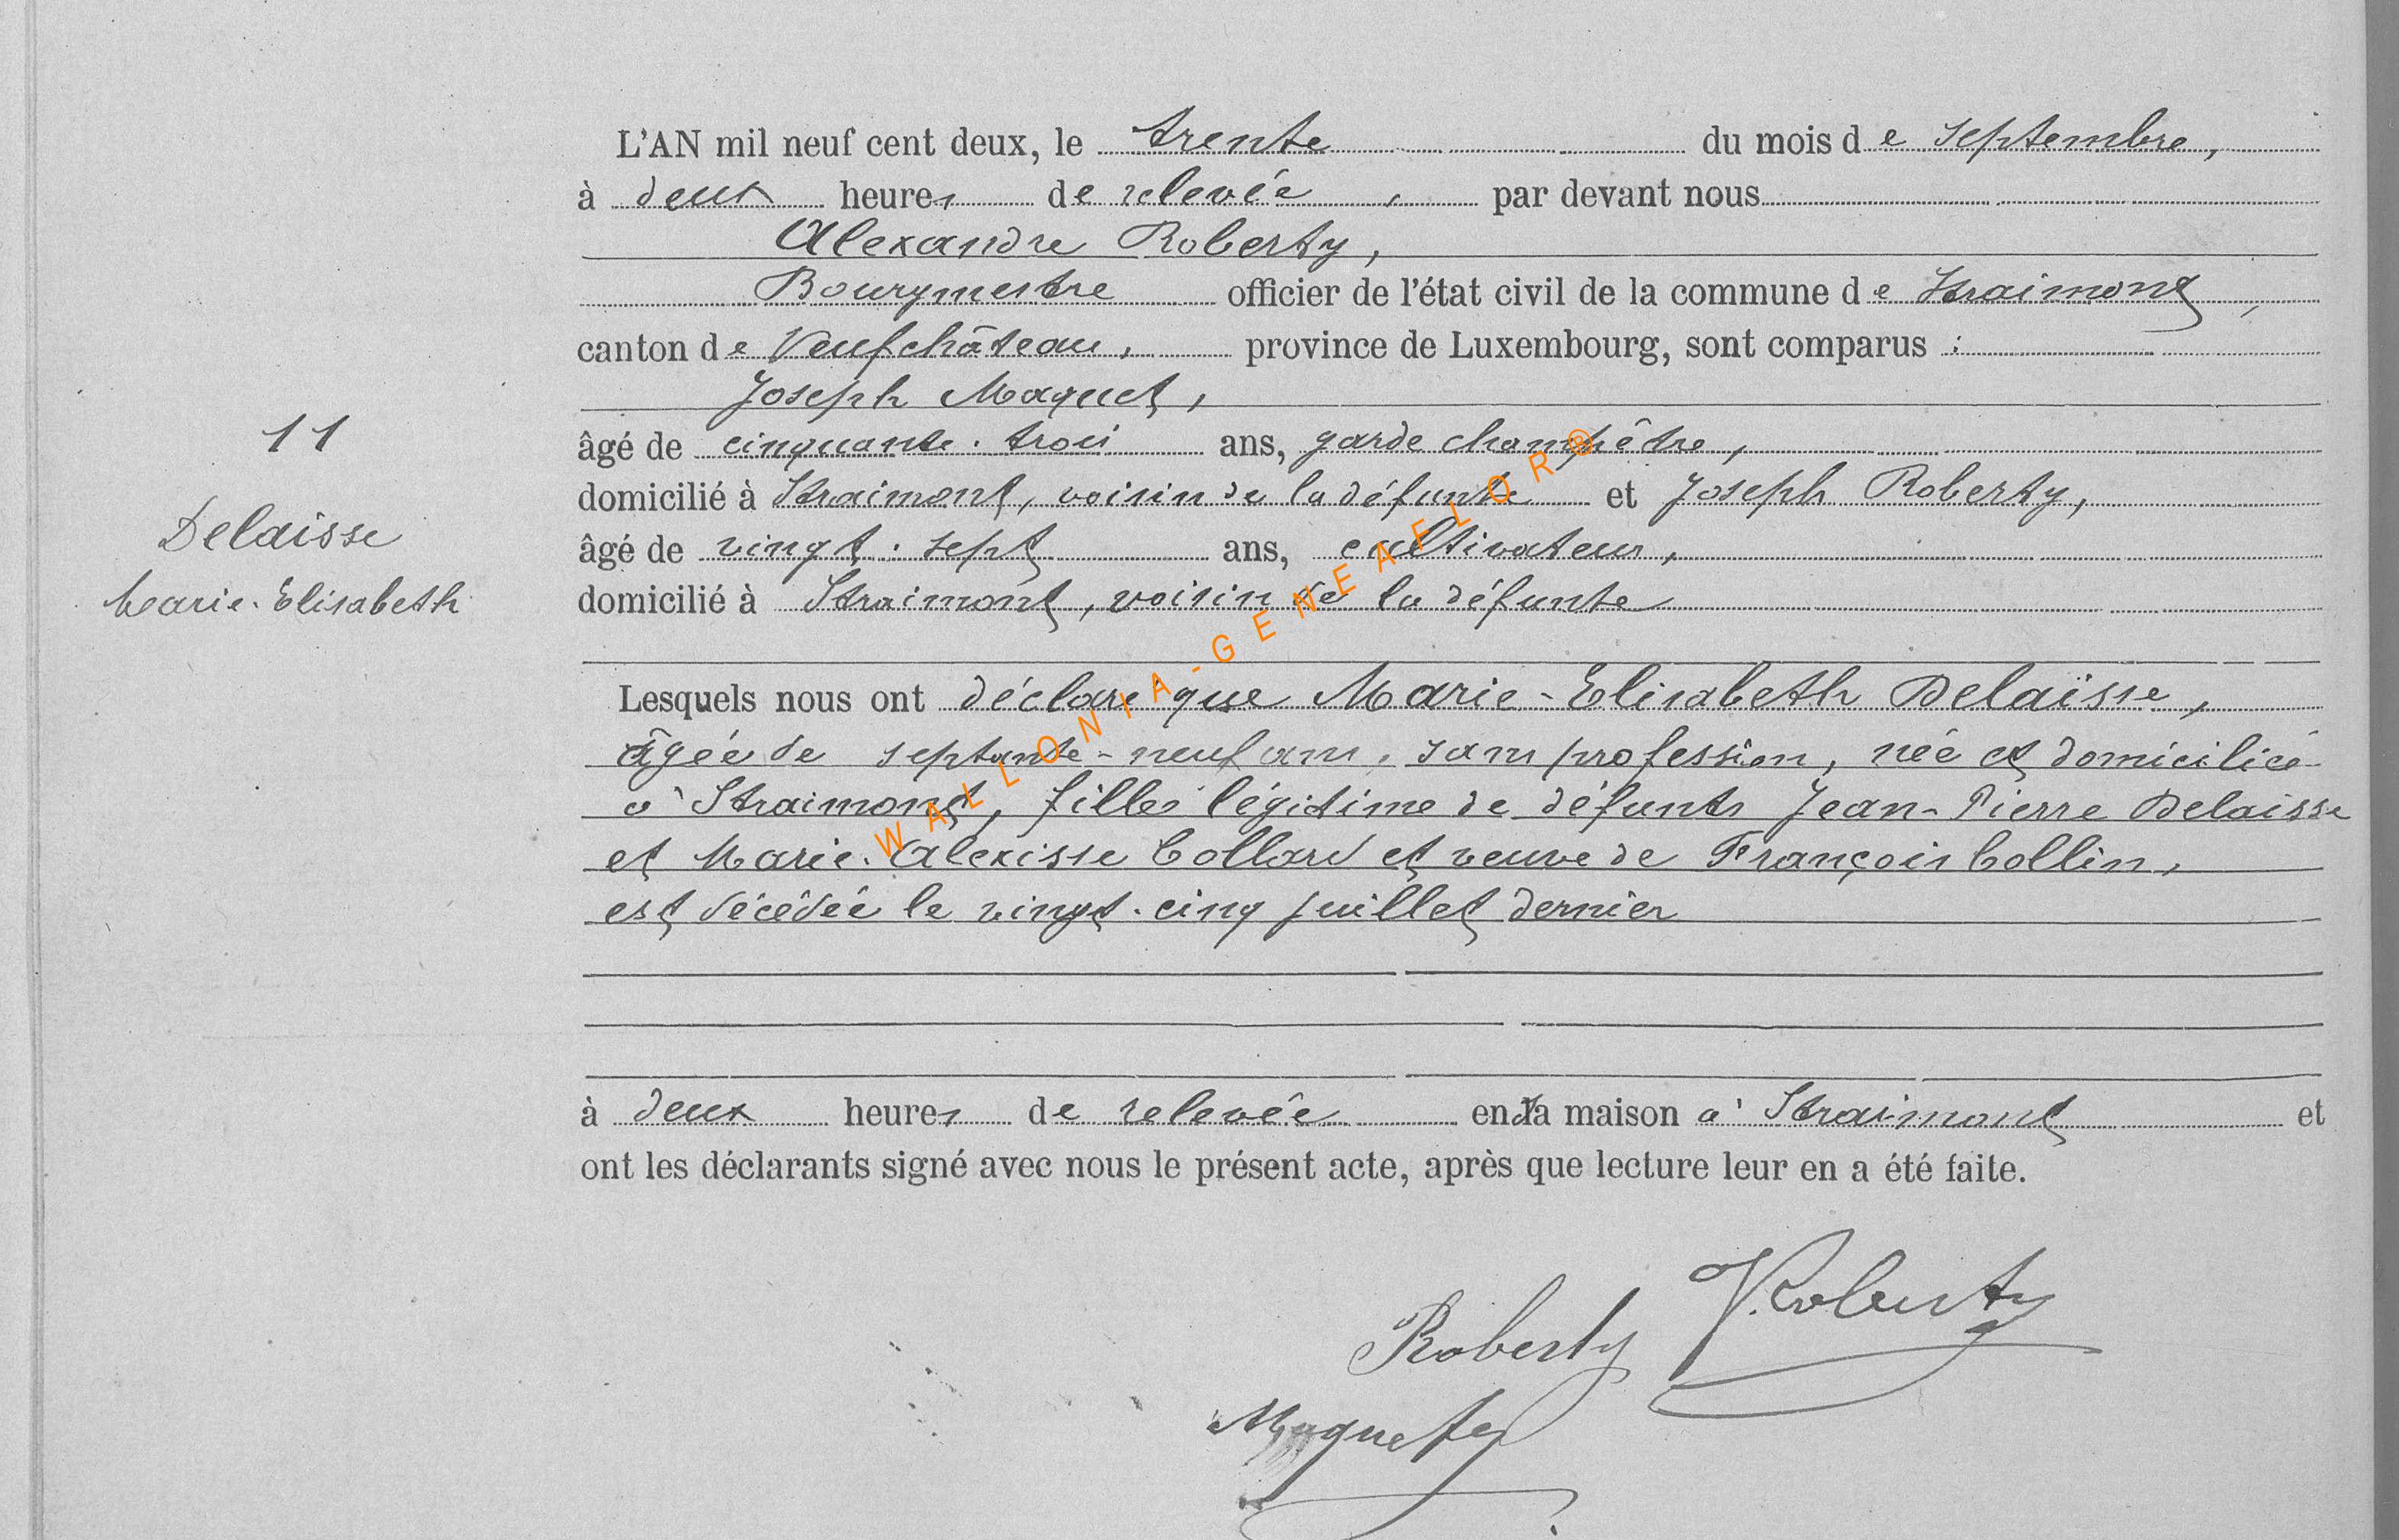 L'AN mil neuf cent deux, le trente du mois de septembre,
à deux heures de relevée, par devant nous
Alexandre Roberty,
Bourgmestre officier de l'état civil de la commune de Straimont,
canton de Neufchâteau, province de Luxembourg, sont comparus :
Joseph Maquet,
âgé de cinquante-trois ans, garde champêtre,
domicilié à Straimont, voisin de la défunte et Joseph Roberty,
âgé de vingt-sept ans, cultivateur,
domicilié à Straimont, voisin de la défunte
11
Delaisse
Marie-Elisabeth
Lesquels nous ont déclaré que Marie-Elisabeth Delaisse,
âgée de septante-neuf ans, sans profession, née et domiciliée
à Straimont, fille légitime de défunts Jean-Pierre Delaisse
et Marie-Alexisse Collard et veuve de François Collin,
est décédée le vingt-cinq juillet dernier
à deux heures de relevée en sa maison à Straimont et
ont les déclarants signé avec nous le présent acte, après que lecture leur en a été faite.
Roberty J. Roberty
Maquet
WALLONIA-GENEAFLOR®